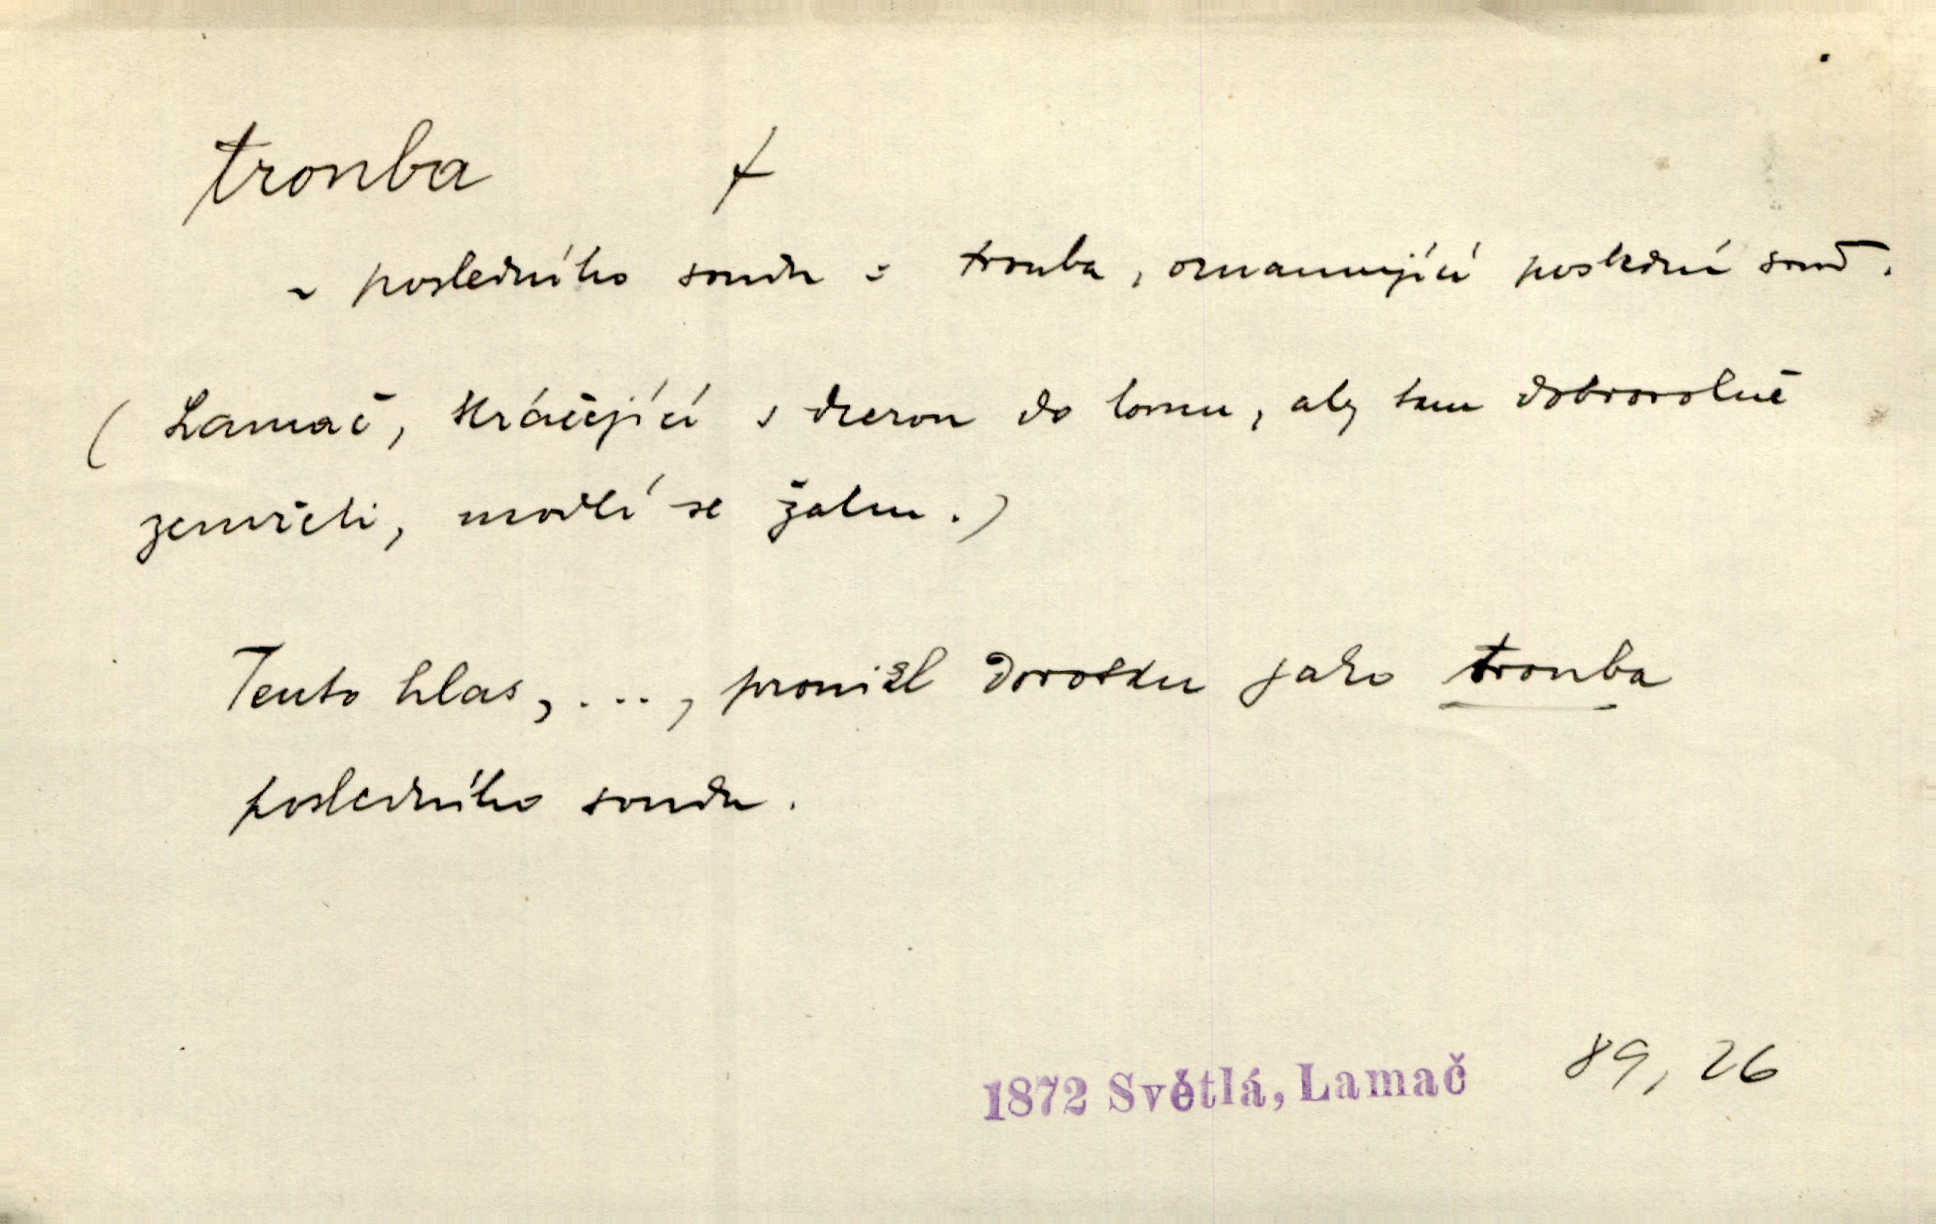 trouba +
~ posledního soudu = trouba, oznamující poslední soud.
( Lamač, kráčející s dcerou do lomu, aby tam dobrovolně
zemřeli, modlí se žalm.)
Tento hlas, ..., pronikl jako trouba
posledního soudu.
1872 Světlá, Lamač 89, 26